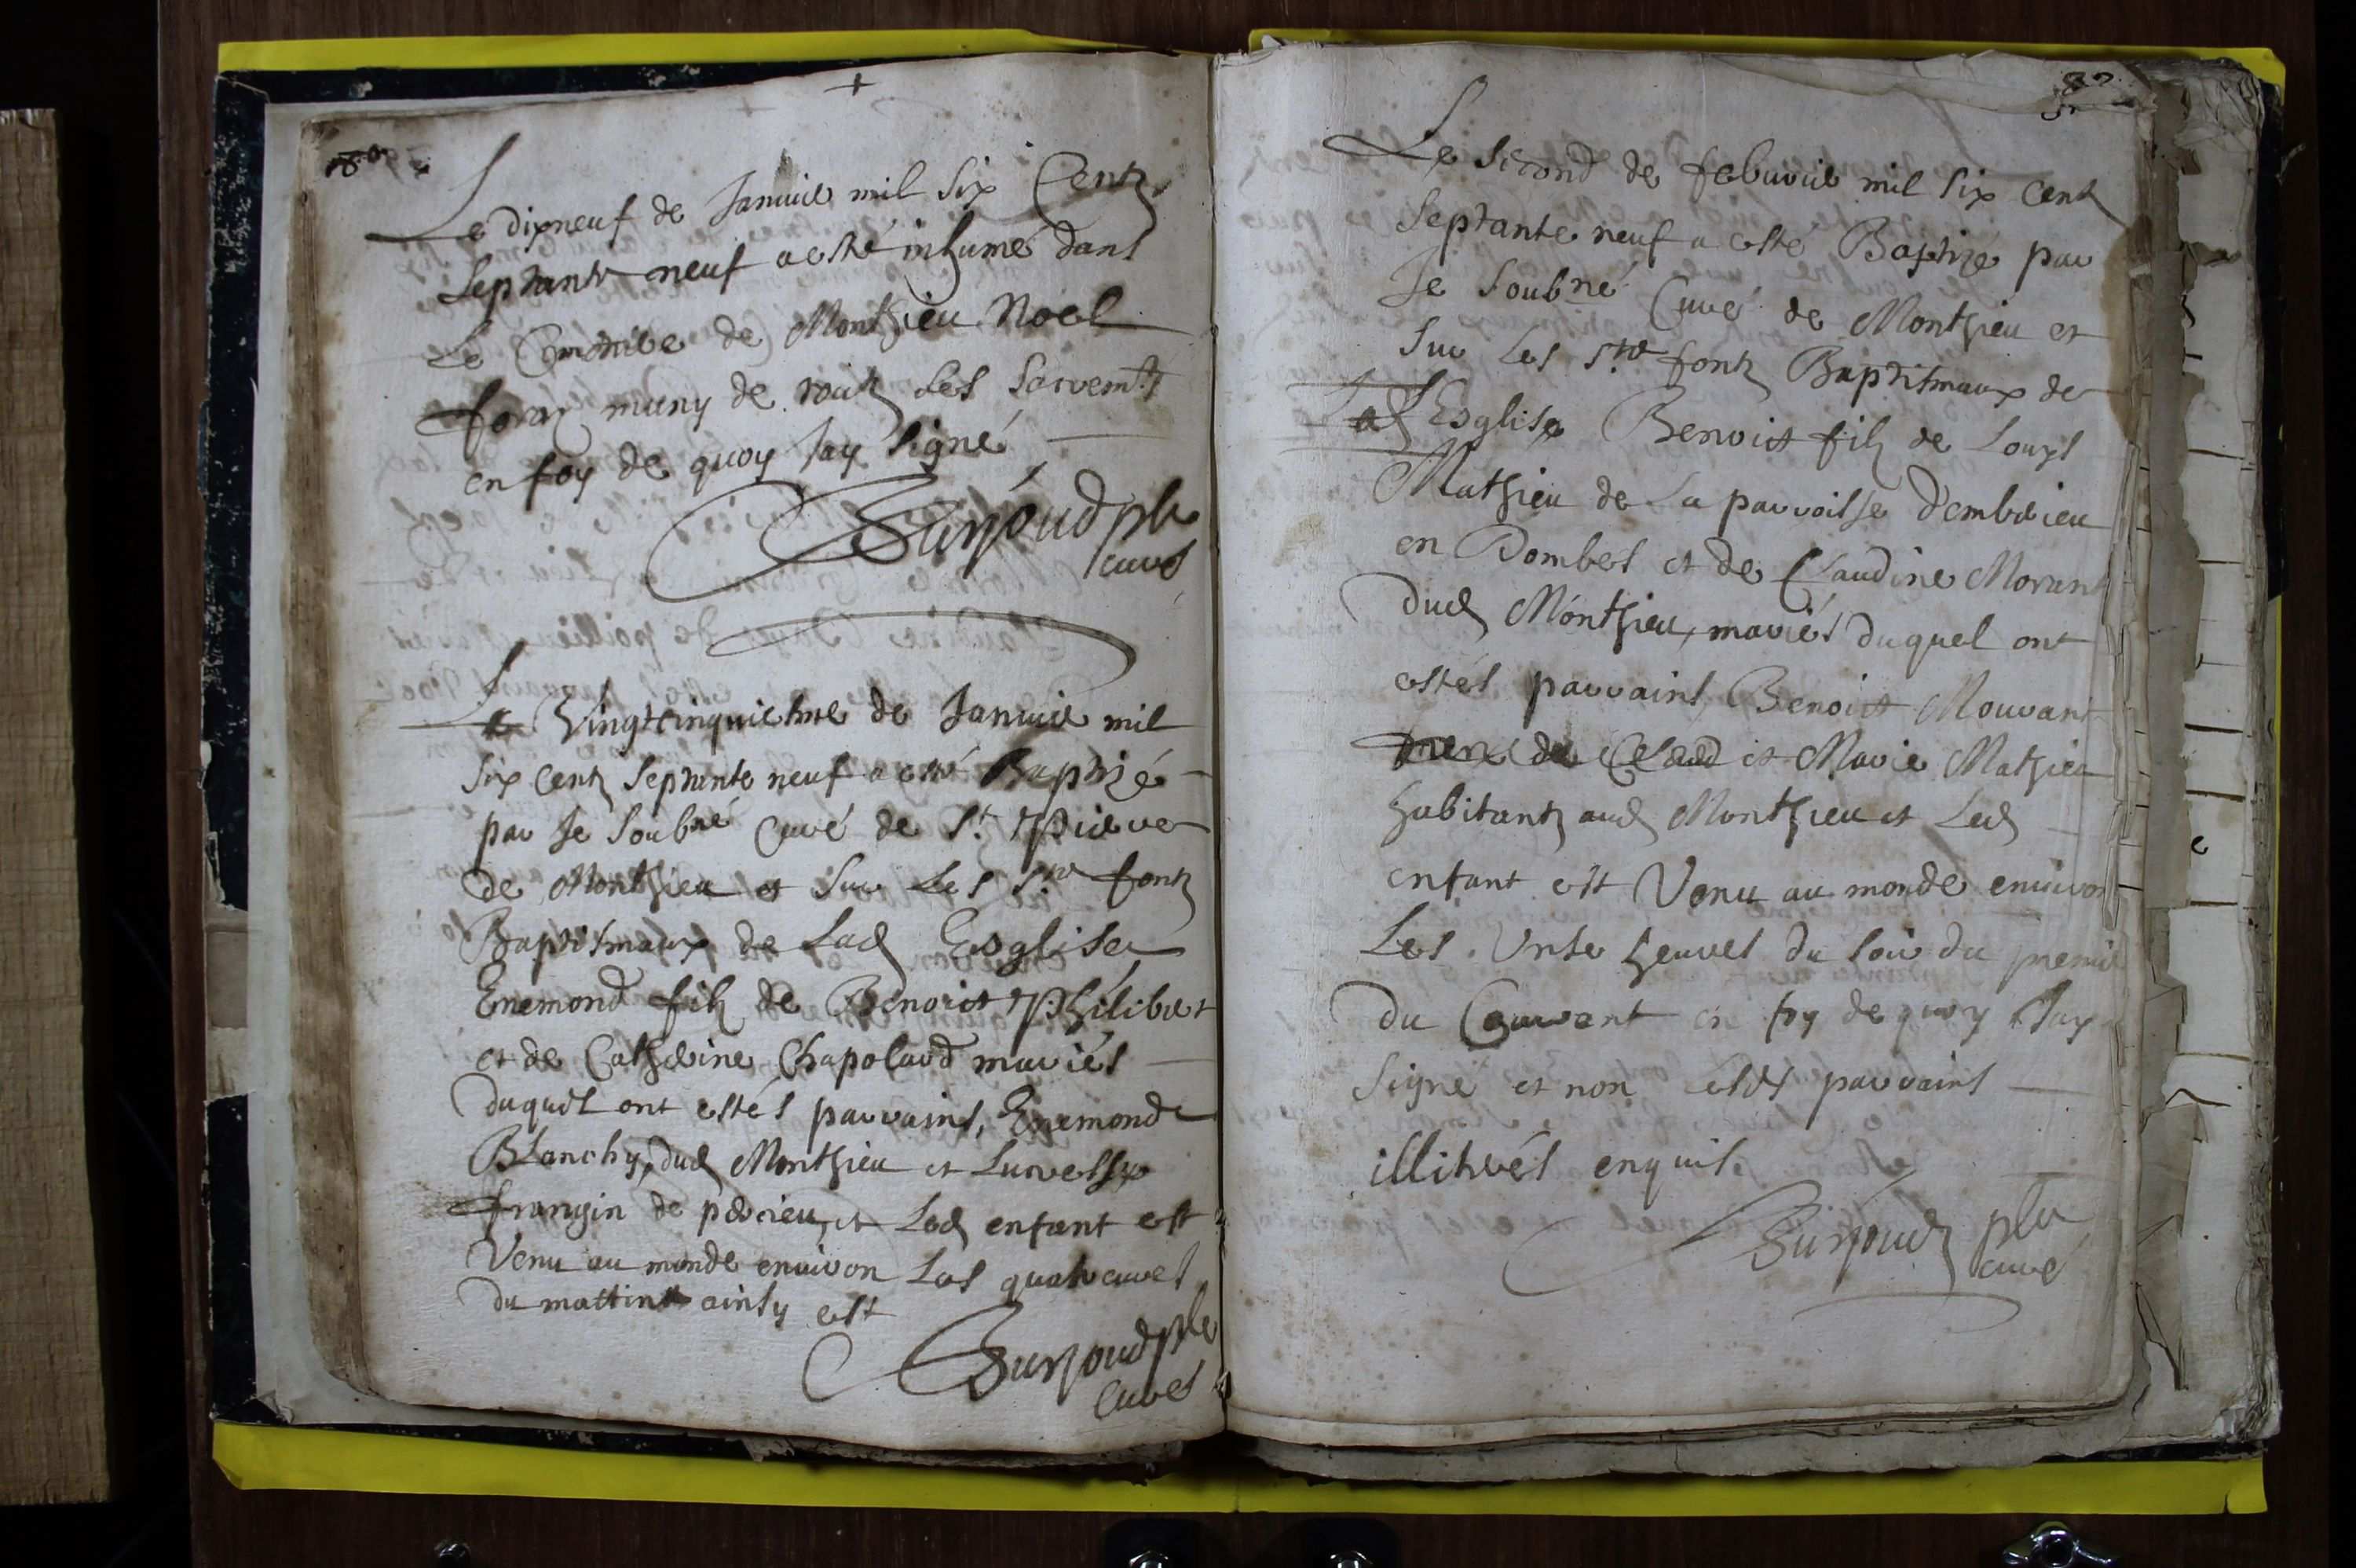 Le dixneuf de Januier mil Six Centz
Septante neuf a esté inhumé dans
Le Cimetiere de Monthieu Noel
foray muny de toutz Les Sacremts
en foy de quoy Jay Signé
Surjoud pbr
curé
Le Vingtcinquiesme de Januier mil
Six Centz Septante neuf a esté Baptizé
par Je Soubné Curé de St. Pierre
de Monthieu et Sur Les Sts fontz
Baptismaux de Lad Esglise
Enemond filz de Benoist Philibert
et de Catherine Chapolard mariés
duquel ont estés parrains, Enemond
Blanchy, dud Monthieu et
frangin de et Led enfant est
Venu au monde enuiron Les quatre
du mattin ainsy est
Surjoud pbr
Curé
Le Second de feburier mil Six Centz
Septante neuf a esté Baptizé par
Je Soubné Curé de Monthieu et
Sur Les Sts fontz Baptismaux de
Lad Esglise Benoist filz de Louys
Mathieu de La parroisse d'embérieu
en Dombes et de Claudine Morant
dud Monthieu, mariés duquel ont
estés parrains Benoist Mouvant
et Marie Mathieu
habitantz aud Monthieu et Led
enfant est Venu au monde enuiron
Les Unse heures du Soir du premier
du Courant en foy de quoy Jay
Signé et non parrains
illitérés enquis
Surjoud pbr
curé